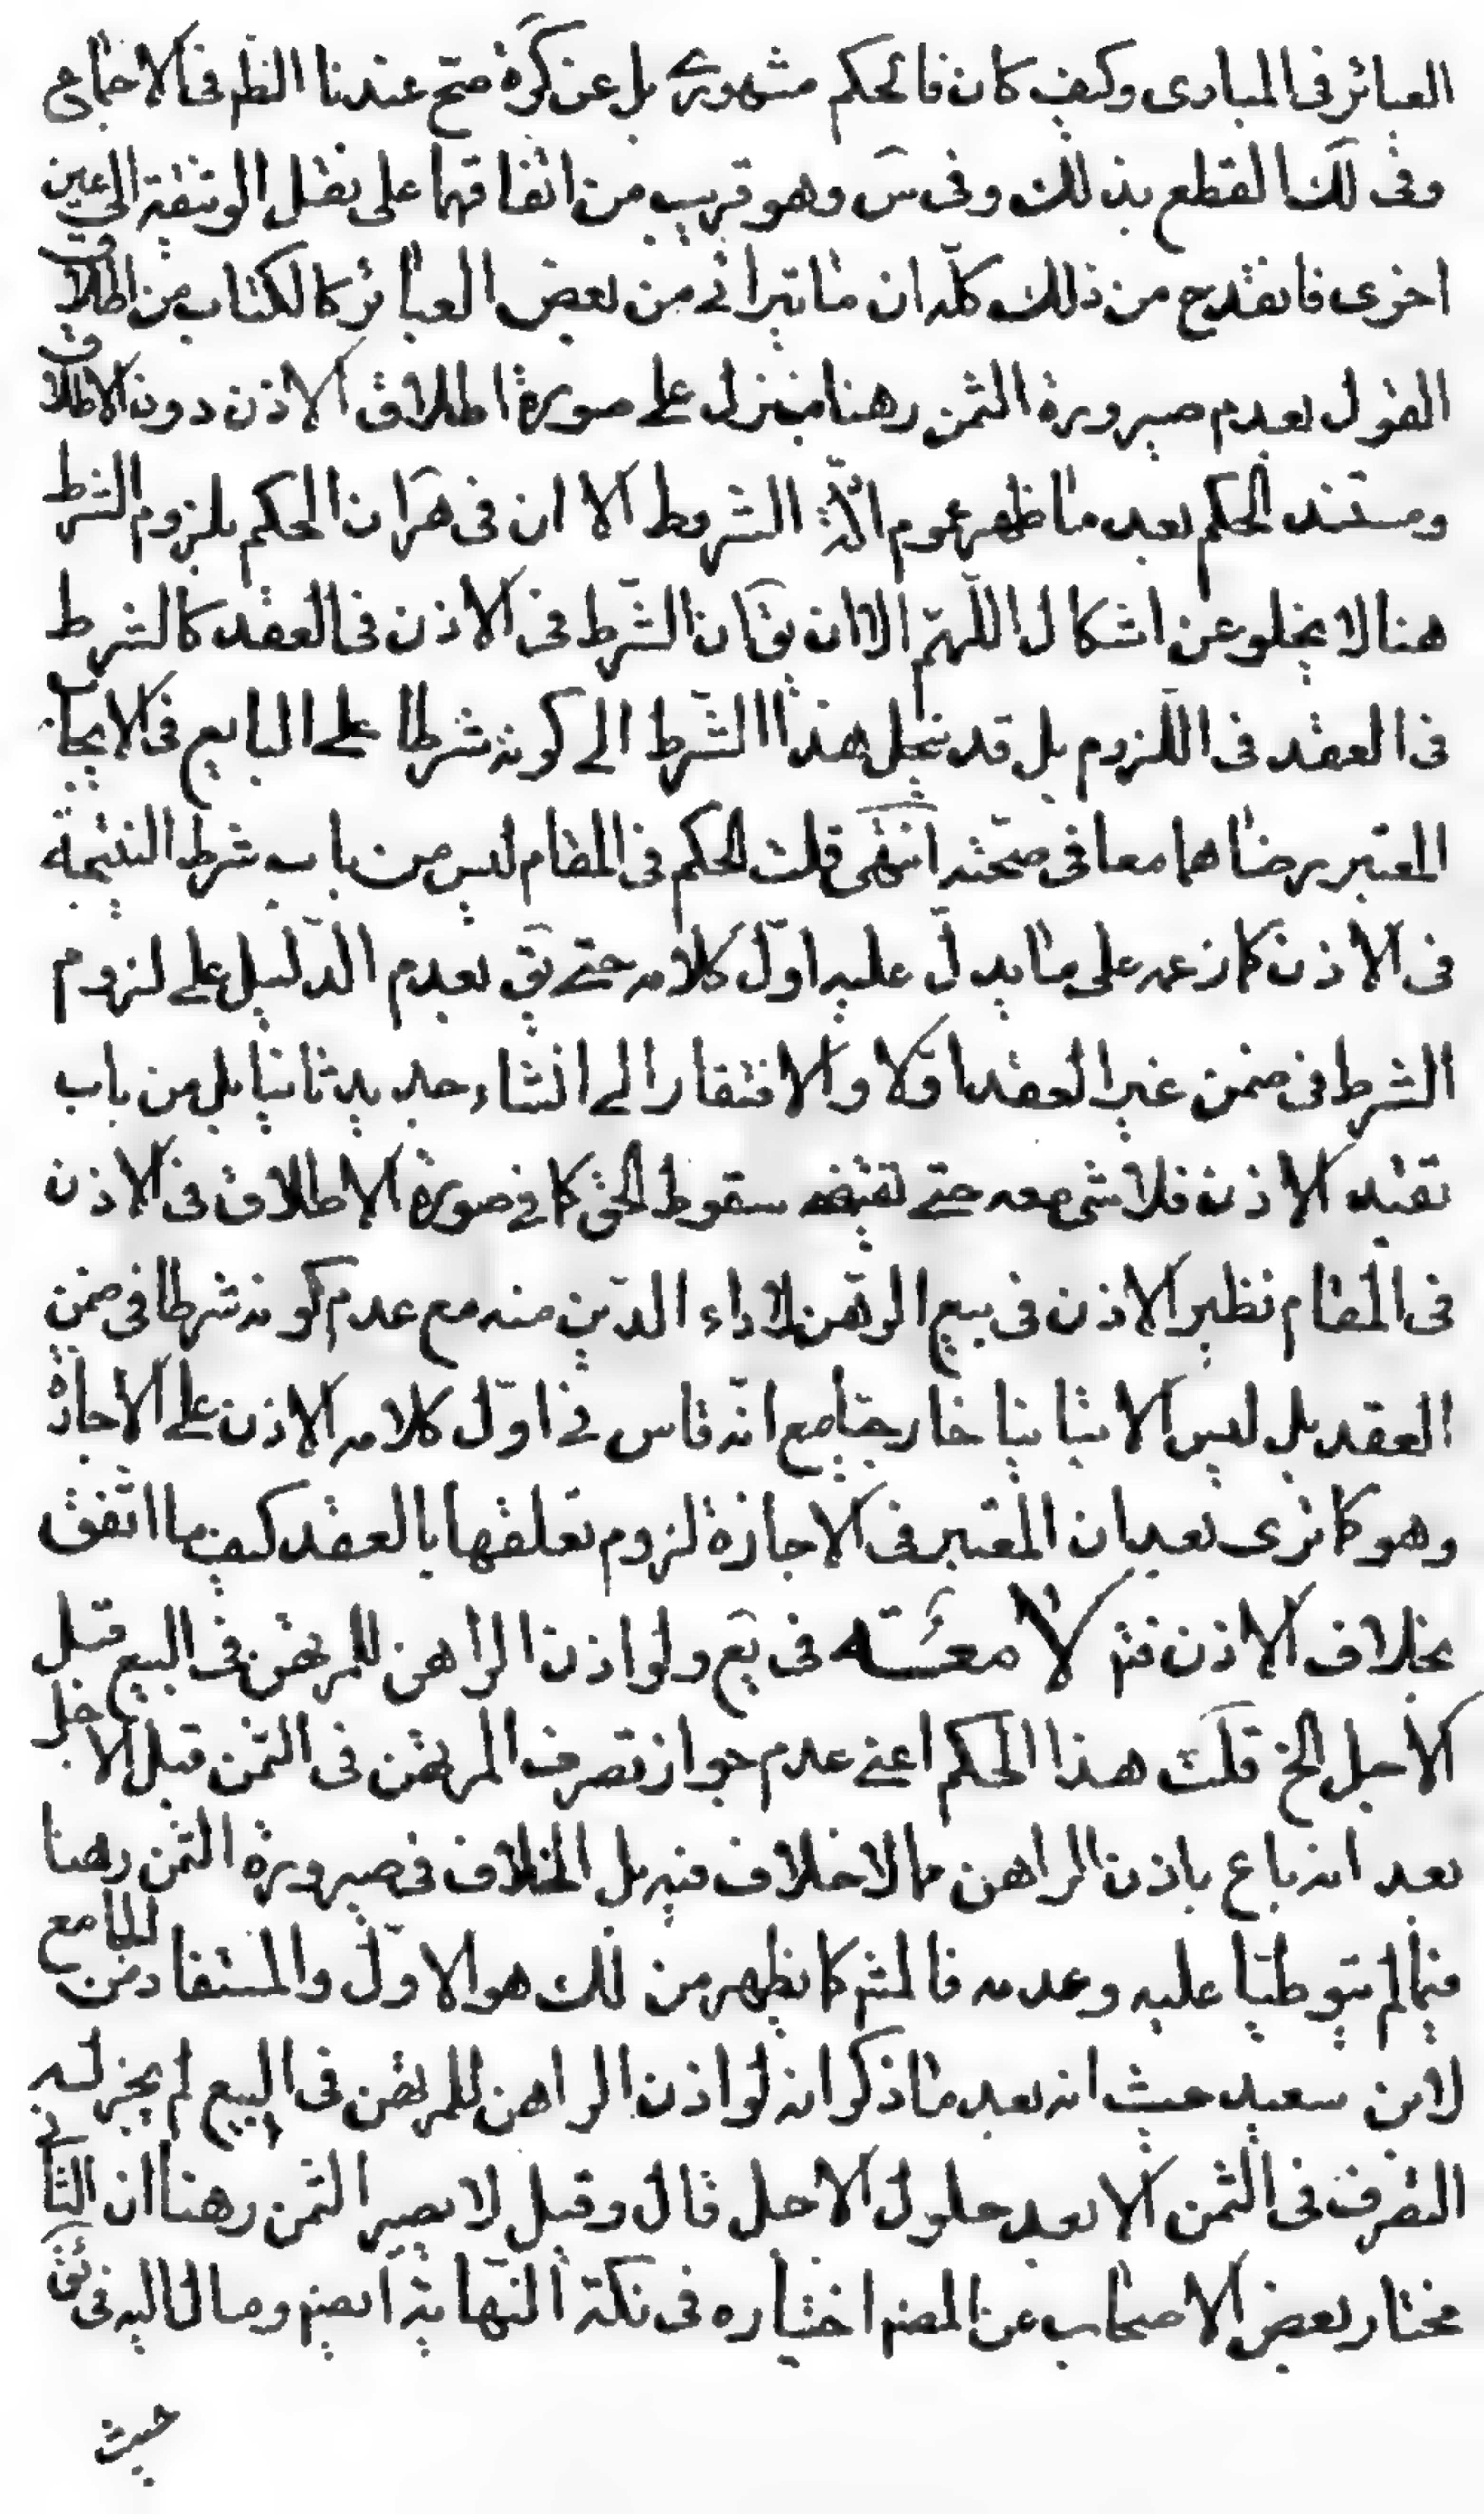 العبائر فى المبادى وكيف كان فالحكم مشهورى بل عن كرة صح عندنا الظم فى الاجماع
وفى لك القطع بذلك وفى س وهو قريب من اتفاقهما على نقل الوثيقة الى عين
اخرى فانقدح من ذلك كله ان ما يترائى من بعض العبائر كالكتاب من اطلاق
القول بعدم صيرورة الثمن رهنا منزل على صورة اطلاق الاذن دون الاطلاق
ومستند الحكم بعد ما ظهر عموم ادلة الشروط الا ان فى هران الحكم بلزوم الشرط
هنا لا يخلو عن اشكال اللهم الا ان يق ان الشرط فى الاذن فى العقد كالشرط
فى العقد فى اللزوم بل قد ينحل هذا الشرط الى كونه شرطا على البايع فى الايجاب
المعتبر رضاهما معا فى صحته انتهى قلت الحكم فى المقام ليس من باب شرط النتيجة
فى الاذن كما زعمه على ما يدل عليه اول كلامه حتى يق بعدم الدليل على لزوم
الشرط فى ضمن غير العقد اولا والافتقار الى انشاء جديد ثانيا بل من باب
تقييد الاذن فلا شئ معه حتى يقتضى سقوط الحق كما فى صورة الاطلاق فى الاذن
فى المقام نظير الاذن فى بيع الرهن لاداء الدين منه مع عدم كونه شرطا فى ضمن
العقد بل ليس الا تبانيا خارجيا مع انه قاس فى اول كلامه الاذن على الاجازة
وهو كما ترى بعد ان المعتبر فى الاجازة لزوم تعلقها بالعقد كيف ما اتفق
بخلاف الاذن فتم لا معسه فى يع ولو اذن الراهن للمرتهن فى البيع قبل
الاجل الخ قلت هذا الحكم اعنى عدم جواز تصرف المرتهن فى الثمن قبل الاجل
بعد انه باع باذن الراهن مما لا خلاف فيه بل الخلاف فى صيرورة الثمن رهنا
فيما لم يتوطيا عليه وعدمه فالمشر كما يظهر من لك هو الاول والمستفاد من الجامع
لابن سعيد حيث انه بعد ما ذكر انه لو اذن الراهن للمرتهن فى البيع لم يجز له
التصرف فى الثمن الا بعد حلول الاجل قال وقيل لا يصير الثمن رهنا ان الثانى
مختار بعض الاصحاب عن المضر اختياره فى نكتة النهاية ايضم ومال اليه فى ئق
حيث